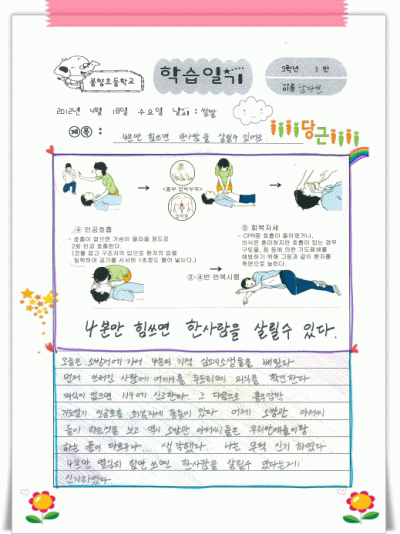 봉명초등학교
학습일기
5학년 1반
이름
2012년 4월 18일 수요일 날씨: 쌀쌀
당근
제목:
4분만 힘쓰면 한사람을 살릴수 있어요
<흉부 압박부위>
④ 인공호흡
- 호흡이 없으면 가슴이 올라올 정도로
2회 인공 호흡한다.
(코를 잡고 구조자의 입으로 환자의 입을
밀착하여 공기를 서서히 1초정도 불어 넣는다.)
⑤ 회복자세
- CPR중 호흡이 돌아왔거나,
의식은 혼미하지만 호흡이 있는 경우
구토물, 침 등에 의한 기도폐쇄를
예방하기 위해 그림과 같이 환자를
측면으로 눕힌다.
②~④번 반복시행
4분만 힘쓰면 한사람을 살릴수 있다.
오늘은 소방서에 가서 4분의 기적 심폐소생술을 배웠다
먼저 쓰러진 사람에 어깨를 두드리며 의식을 확인한다
의식이 없으면 119에 신고한다 그 다음으로 흉부압박
기도열기 인공호흡 회복자세 등등이 있다 어제 소방관 아저씨
들이 하는것을 보고 역시 소방관 아저씨들은 우리반애들이랑
하는 폼이 다르구나... 생각했다. 나는 무척 신기 하였다.
4분만 열심히 힘만 쓰면 한사람을 살릴수 있다는것이
신기하였다.